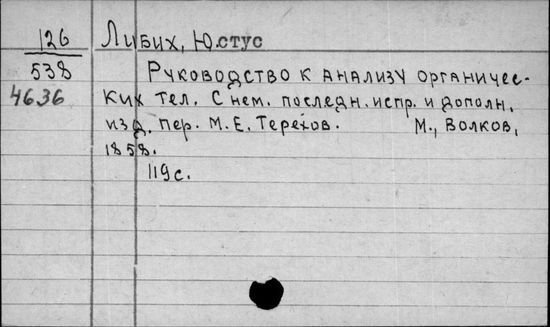 126 Либих, Юстус
538 Руководство к анализу органичес-
4636 ких тел. С нем. последн. испр. и дополн.
изд. пер. М. Е. Терехов. М., Волков,
1858.
119 с.